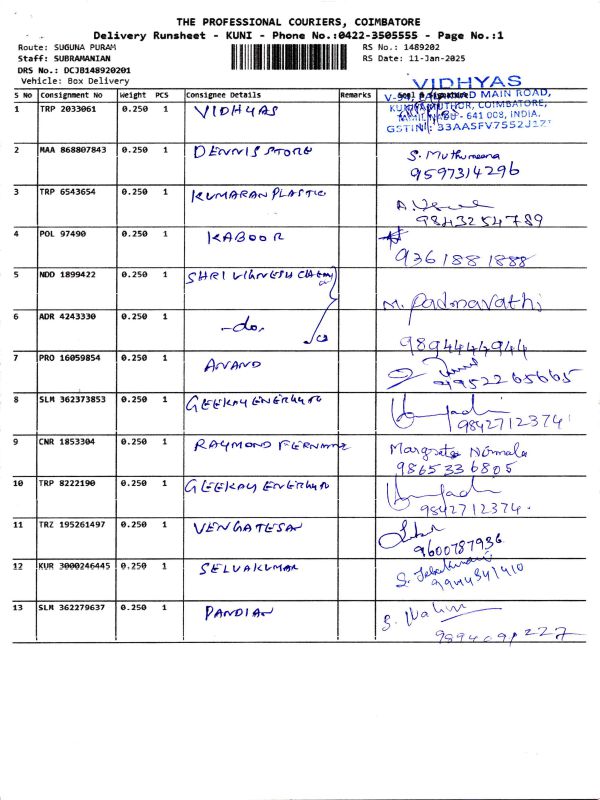 THE PROFESSIONAL COURIERS, COIMBATORE
Delivery Runsheet - KUNI - Phone No.:0422-3505555 - Page No.:1
Route: SUGUNA PURAM
RS No.: 1489202
Staff: SUBRAMANIAN
RS Date: 11-Jan-2025
DRS No.: DCJB148920201
Vehicle: Box Delivery
VIDHYAS
S No Consignment No Weight PCS Consignee Details Remarks
MAIN ROAD,
COIMBATORE,
- 641 008, INDIA.
GSTIN: 33AASFV7552J1Z
1 TRP 2033061 0.250 1 VIDHYAS
2 MAA 868807843 0.250 1 DENNIS STORE S. Muthumeena
9597314296
3 TRP 6543654 0.250 1 KUMARAN PLASTIC
9843254789
4 POL 97490 0.250 1 KABOOR
9361881888
5 NDD 1899422 0.250 1 SHRI VIGNESH M. Padmavathi
6 ADR 4243330 0.250 1 -do-
9894444944
7 PRO 16059854 0.250 1 ANAND
9952265665
8 SLM 362373853 0.250 1 GEEKAY
9842712374
9 CNR 1853304 0.250 1 RAYMOND Margreta Nirmala
9865336805
10 TRP 8222190 0.250 1 GEEKAY
9842712374
11 TRZ 195261497 0.250 1 VENGATESAN
9600787936
12 KUR 3000246445 0.250 1 SELVAKUMAR
9944341410
13 SLM 362279637 0.250 1 PANDIAN